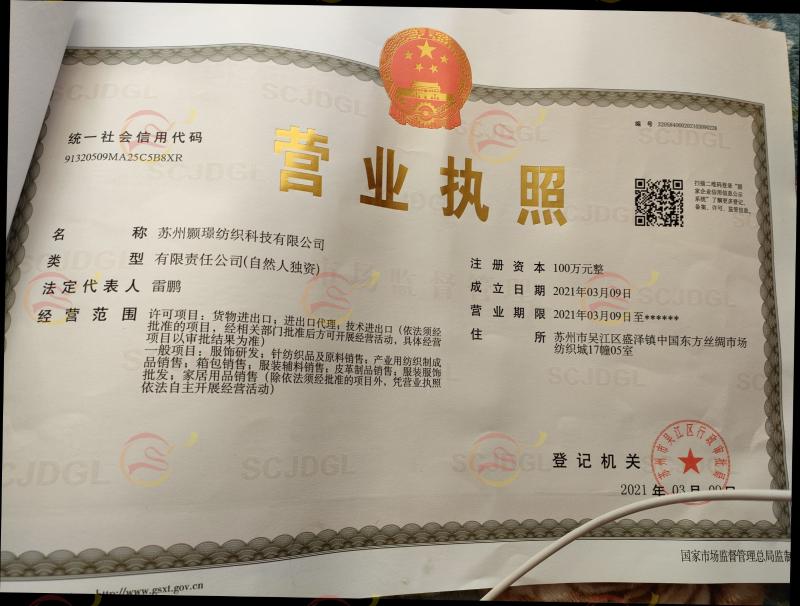 统一社会信用代码
91320509MA25C5B8XR
营业执照
扫描二维码登录“国
家企业信用信息公示
系统”了解更多登记、
备案、许可、监管信息。
名 称 苏州颢璟纺织科技有限公司
类 型 有限责任公司(自然人独资)
法定代表人 雷鹏
经营范围 许可项目：货物进出口；进出口代理；技术进出口（依法须经
批准的项目，经相关部门批准后方可开展经营活动，具体经营
项目以审批结果为准）
一般项目：服饰研发；针纺织品及原料销售；产业用纺织制成
品销售；箱包销售；服装辅料销售；皮革制品销售；服装服饰
批发；家居用品销售（除依法须经批准的项目外，凭营业执照
依法自主开展经营活动）
注册资本 100万元整
成立日期 2021年03月09日
营业期限 2021年03月09日至******
住 所 苏州市吴江区盛泽镇中国东方丝绸市场
纺织城17幢05室
登记机关
苏州市吴江区行政审批局
2021 年 03 月 09 日
http://www.gsxt.gov.cn
国家市场监督管理总局监制
SCJDGL